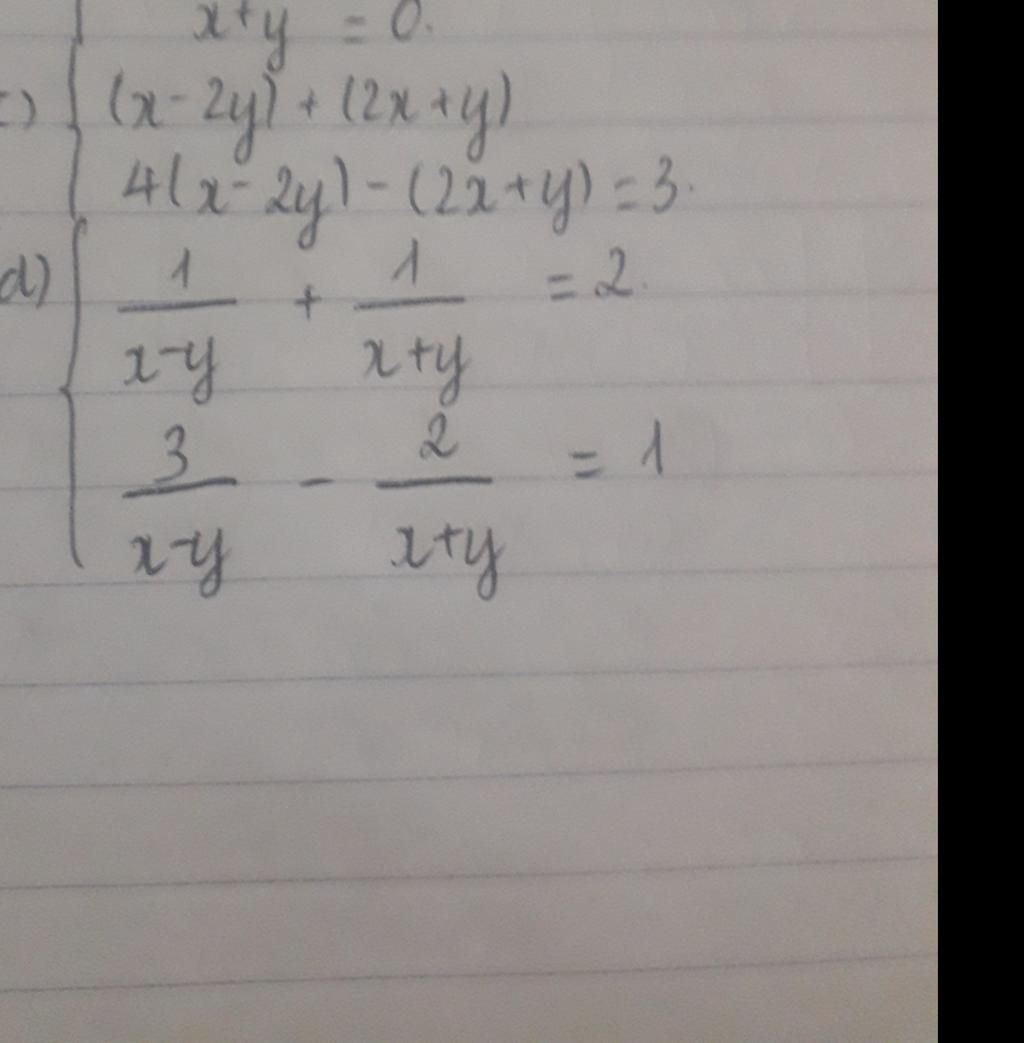 x+y = 0.
c) (x-2y) + (2x+y)
4(x-2y) - (2x+y) = 3.
d) 1/(x-y) + 1/(x+y) = 2.
3/(x-y) - 2/(x+y) = 1